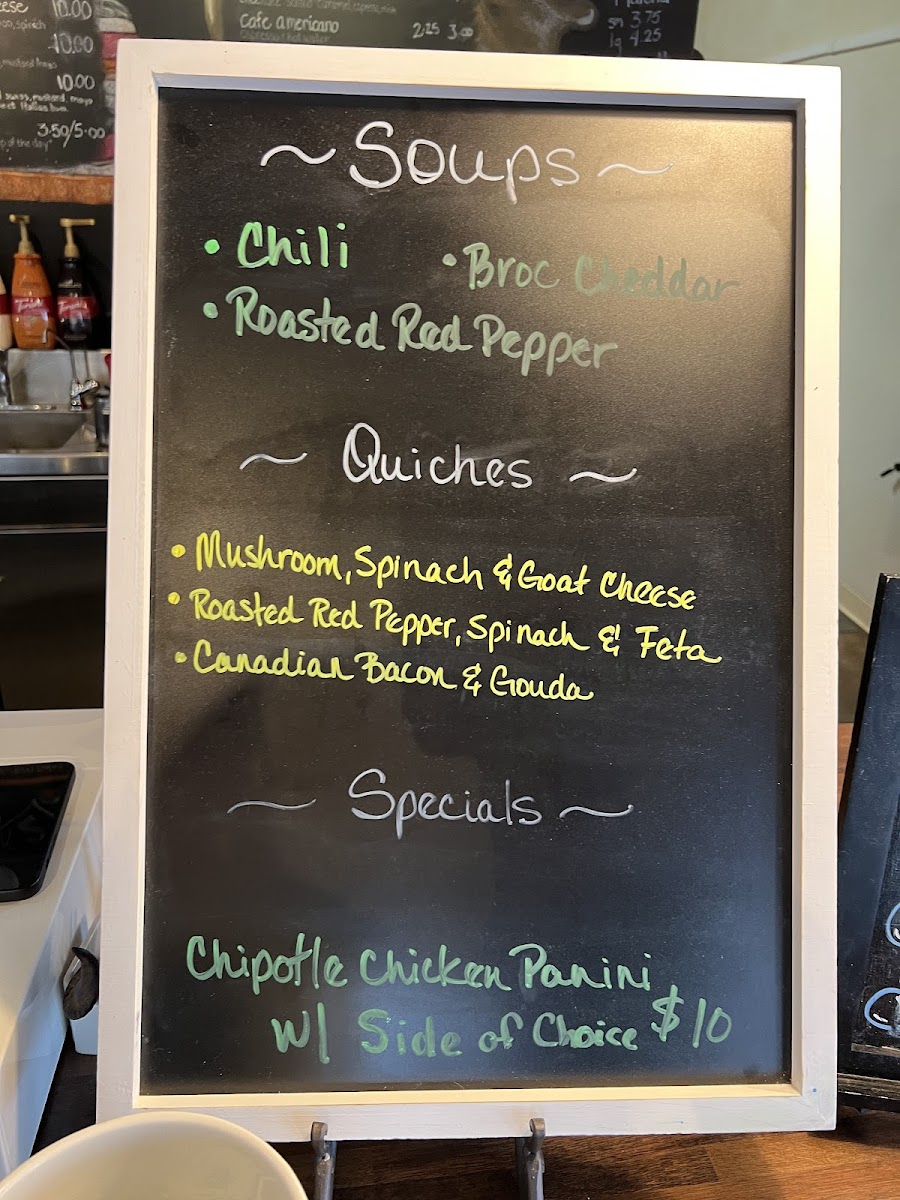 10.00
10.00
10.00
3.50/5.00
Cafe americano
2.25 3.00
sm 3.75
lg 4.25
~ Soups ~
• Chili • Broc Cheddar
• Roasted Red Pepper
~ Quiches ~
• Mushroom, Spinach & Goat Cheese
• Roasted Red Pepper, Spinach & Feta
• Canadian Bacon & Gouda
~ Specials ~
Chipotle Chicken Panini
W/ Side of Choice $10